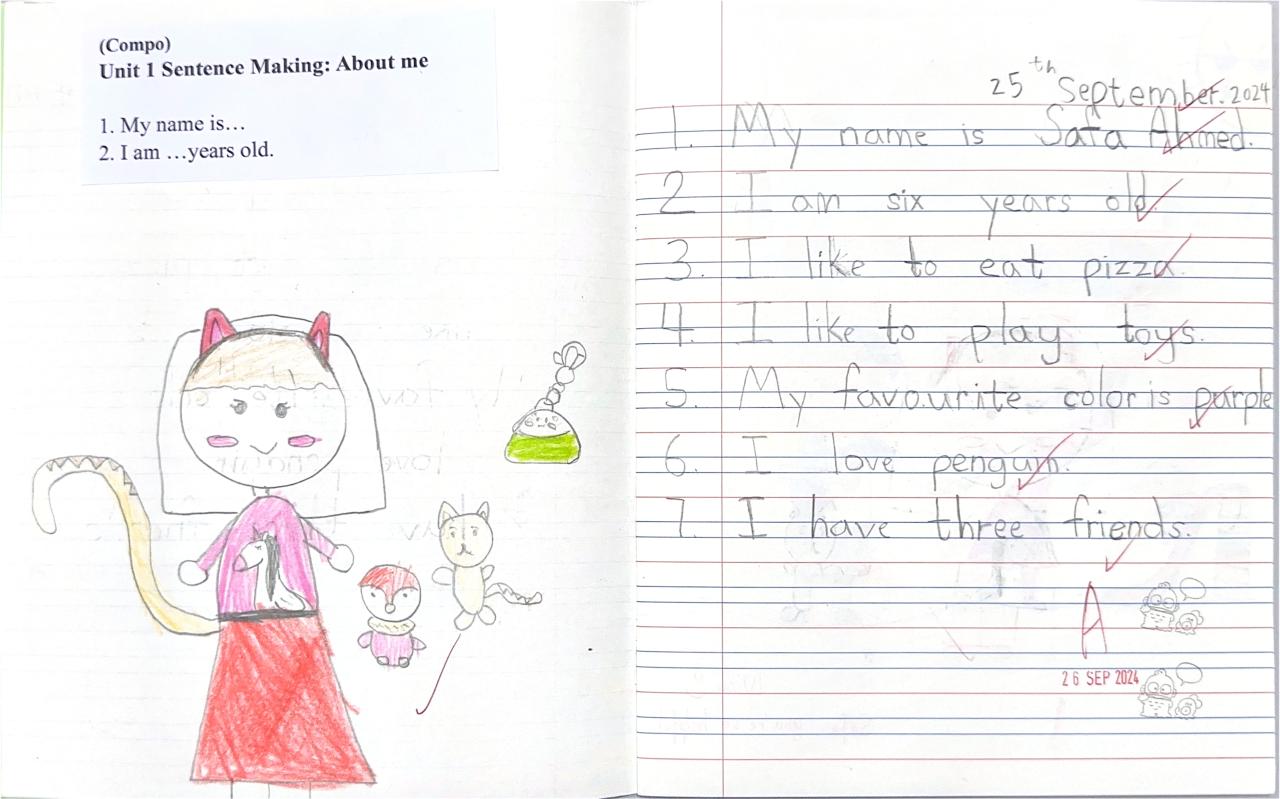 (Compo)
Unit 1 Sentence Making: About me
1. My name is…
2. I am …years old.
25th September. 2024
1. My name is Safa Ahmed.
2 I am six years old.
3. I like to eat pizza.
4. I like to play toys.
5. My favourite color is purple
6. I love penguin.
7. I have three friends.
A
26 SEP 2024